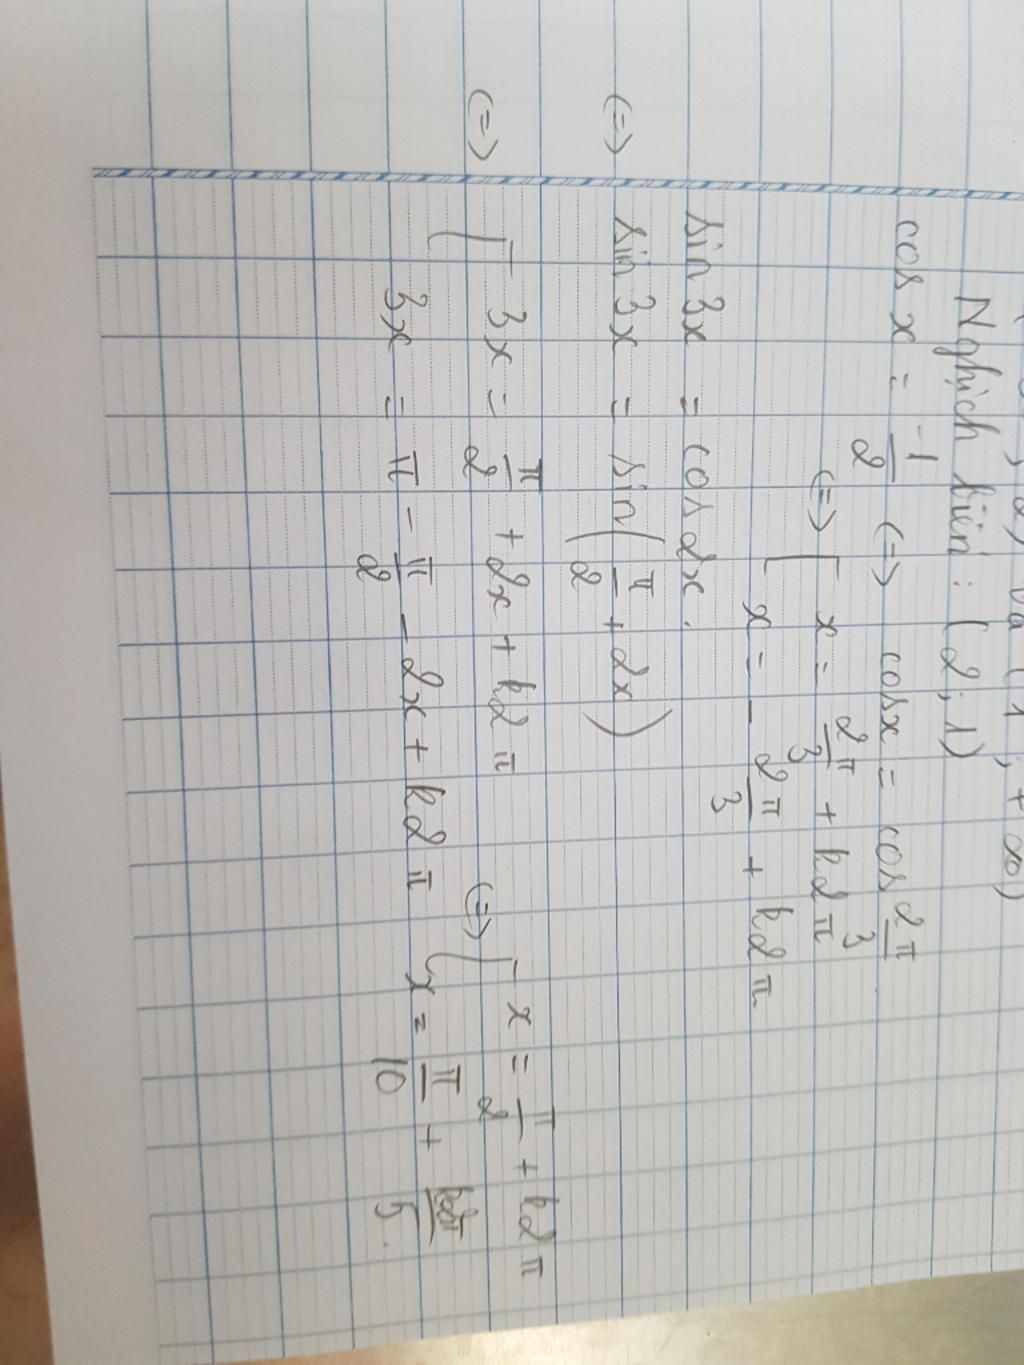 , 2) và (1; +∞)
Nghịch biến : (2; 1)
cos x = -1/2 (=) cos x = cos 2π/3
(=) [ x = 2π/3 + k2π
x = - 2π/3 + k2π
sin 3x = cos 2x.
(=) sin 3x = sin( π/2 + 2x )
(=) [ 3x = π/2 + 2x + k2π (=) [ x = π/2 + k2π
3x = π - π/2 - 2x + k2π x = π/10 + k2π/5.